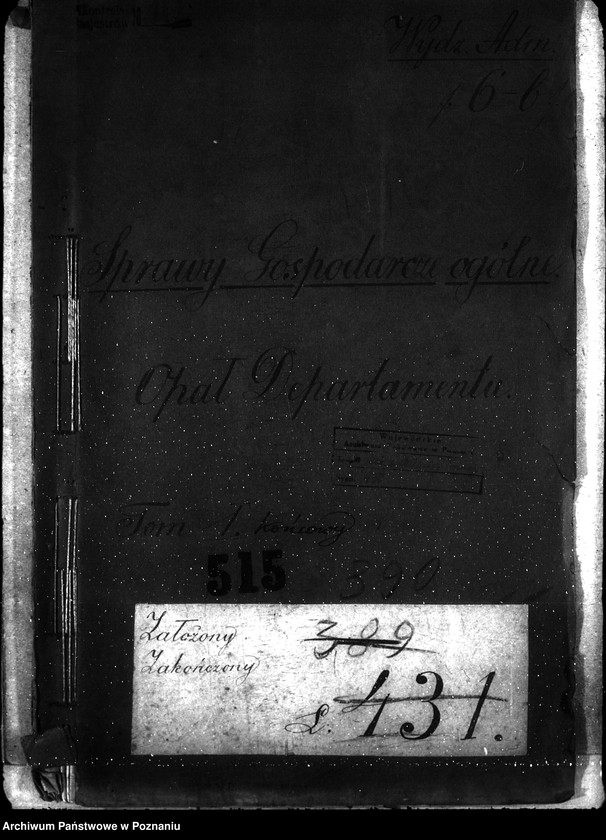 Wydz. Adm.
6-b
Sprawy Gospodarcze ogólne.
Opał Departamentu.
Wojewódzkie
Tom 1. końcowy
515 390
Założony 389
Zakończony
L. 431.
Archiwum Państwowe w Poznaniu